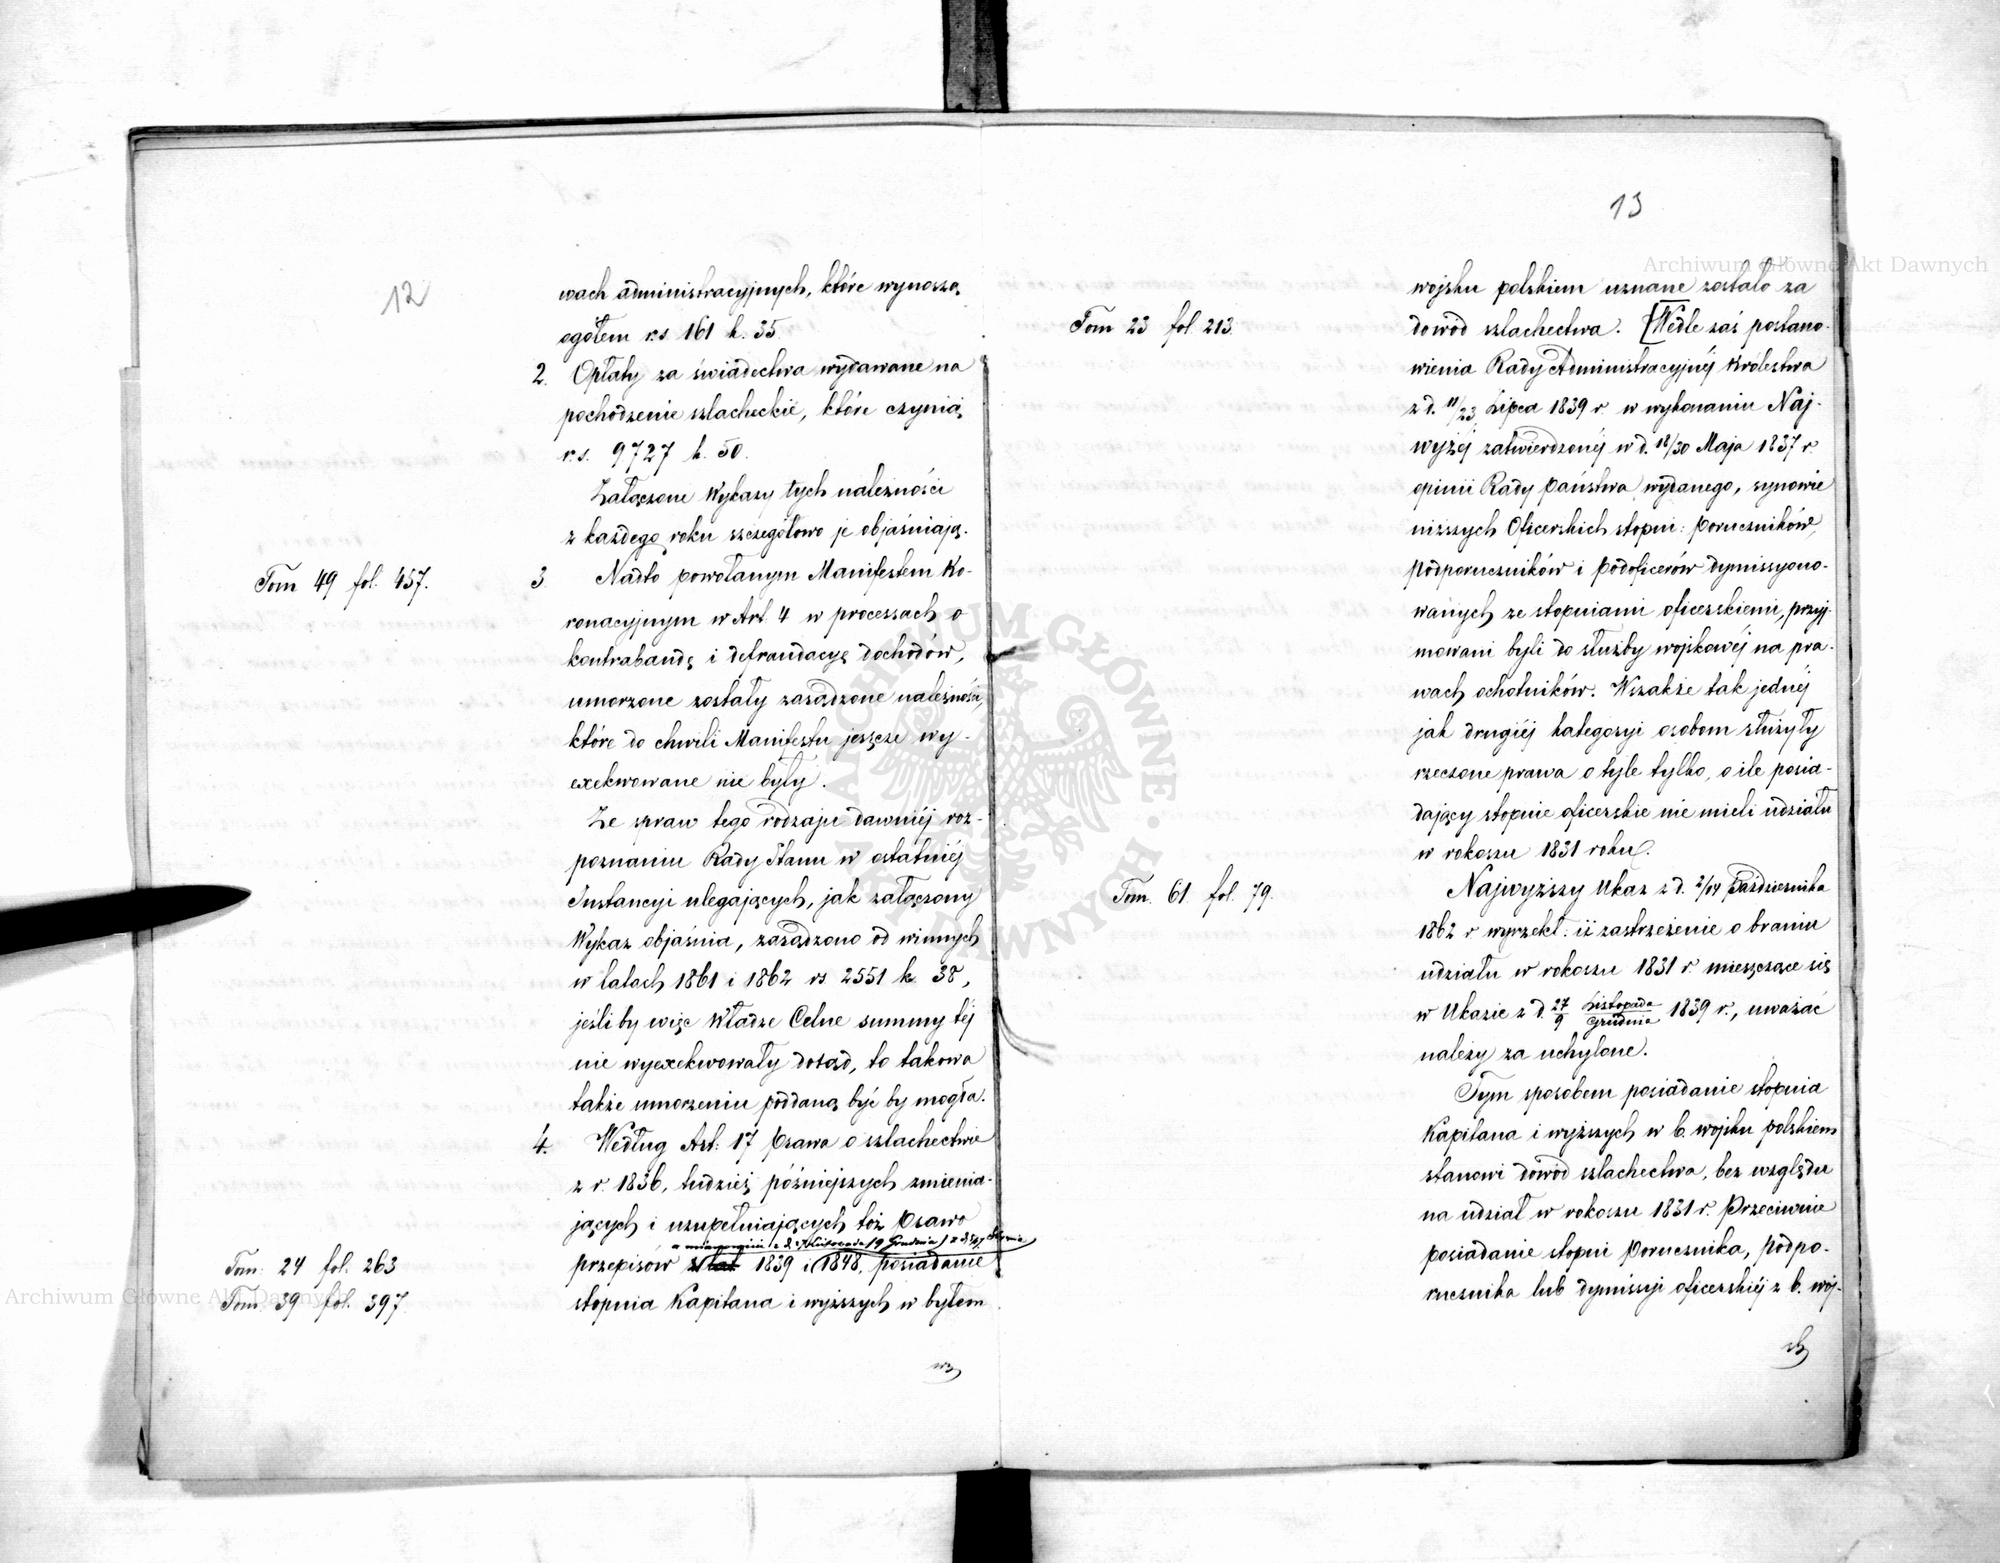 12
wach administracyjnych, które wynoszą
ogółem rs. 161 k. 35.
2. Opłaty za świadectwa wydawane na
pochodzenie szlacheckie, które czynią
r.s. 9727 k. 50.
Załączone Wykazy tych należności
z każdego roku szczegółowo je objaśniają.
Tom 49 fol. 457.
3 Nadto powołanym Manifestem Ko-
ronacyjnym w Art. 4 w processach o
kontrabandę i defraudacyę dochodów,
umorzone zostały zasądzone należności,
które do chwili Manifestu jeszcze wy-
exekwowane nie były.
Ze spraw tego rodzaju dawniéj roz-
poznaniu Rady Stanu w ostatniéj
Instancyi ulegających, jak załączony
Wykaz objaśnia, zasądzono od winnych
w latach 1861 i 1862 rs. 2551 k. 38,
jeśli by więc Władze Celne summy téj
nie wyexekwowały dotąd, to takowa
także umorzeniu poddaną być by mogła.
4. Według Art: 17 Prawa o szlachectwie
z r. 1836, tudzież późniejszych zmienia-
jących i uzupełniających toż Prawo
a mianowicie z d. 27 Listopada / 9 Grudnia
przepisów 1839 i 1848, posiadanie
Tom. 24 fol. 263
Tom. 39 fol. 397.
stopnia Kapitana i wyższych w byłem
13
wojsku polskiem uznane zostało za
Tom 23 fol. 213.
dowód szlachectwa. [Wedle zaś postano-
wienia Rady Administracyjnéj Królestwa
z d. 11/23 Lipca 1839 r. w wykonaniu Naj-
wyżéj zatwierdzonéj w d. 18/30 Maja 1837 r.
opinii Rady Państwa wydanego, synowie
niższych Oficerskich stopni: Poruczników,
Podporuczników i Podoficerów dymissyono-
wanych ze stopniami oficerskiemi, przyj-
mowani byli do służby wojskowéj na pra-
wach ochotników. Wszakże tak jednéj
jak drugiéj kategoryi osobom służyły
rzeczone prawa o tyle tylko, o ile posia-
dający stopnie oficerskie nie mieli udziału
w rokoszu 1831 roku.
Tom. 61 fol. 79.
Najwyższy Ukaz z d. 2/14 Października
1862 r wyrzekł: iż zastrzeżenie o braniu
udziału w rokoszu 1831 r. mieszczące się
w Ukazie z d. 27/9 Listopada/Grudnia 1839 r., uważać
należy za uchylone.
Tym sposobem posiadanie stopnia
Kapitana i wyższych w b. wojsku polskiem
stanowi dowód szlachectwa, bez względu
na udział w rokoszu 1831 r. Przeciwnie
posiadanie stopni Porucznika, Podpo-
rucznika lub dymissyi oficerskiéj z b. woj-
Archiwum Główne Akt Dawnych
Archiwum Główne Akt Dawnych
ARCHIWUM GŁÓWNE AKT DAWNYCH